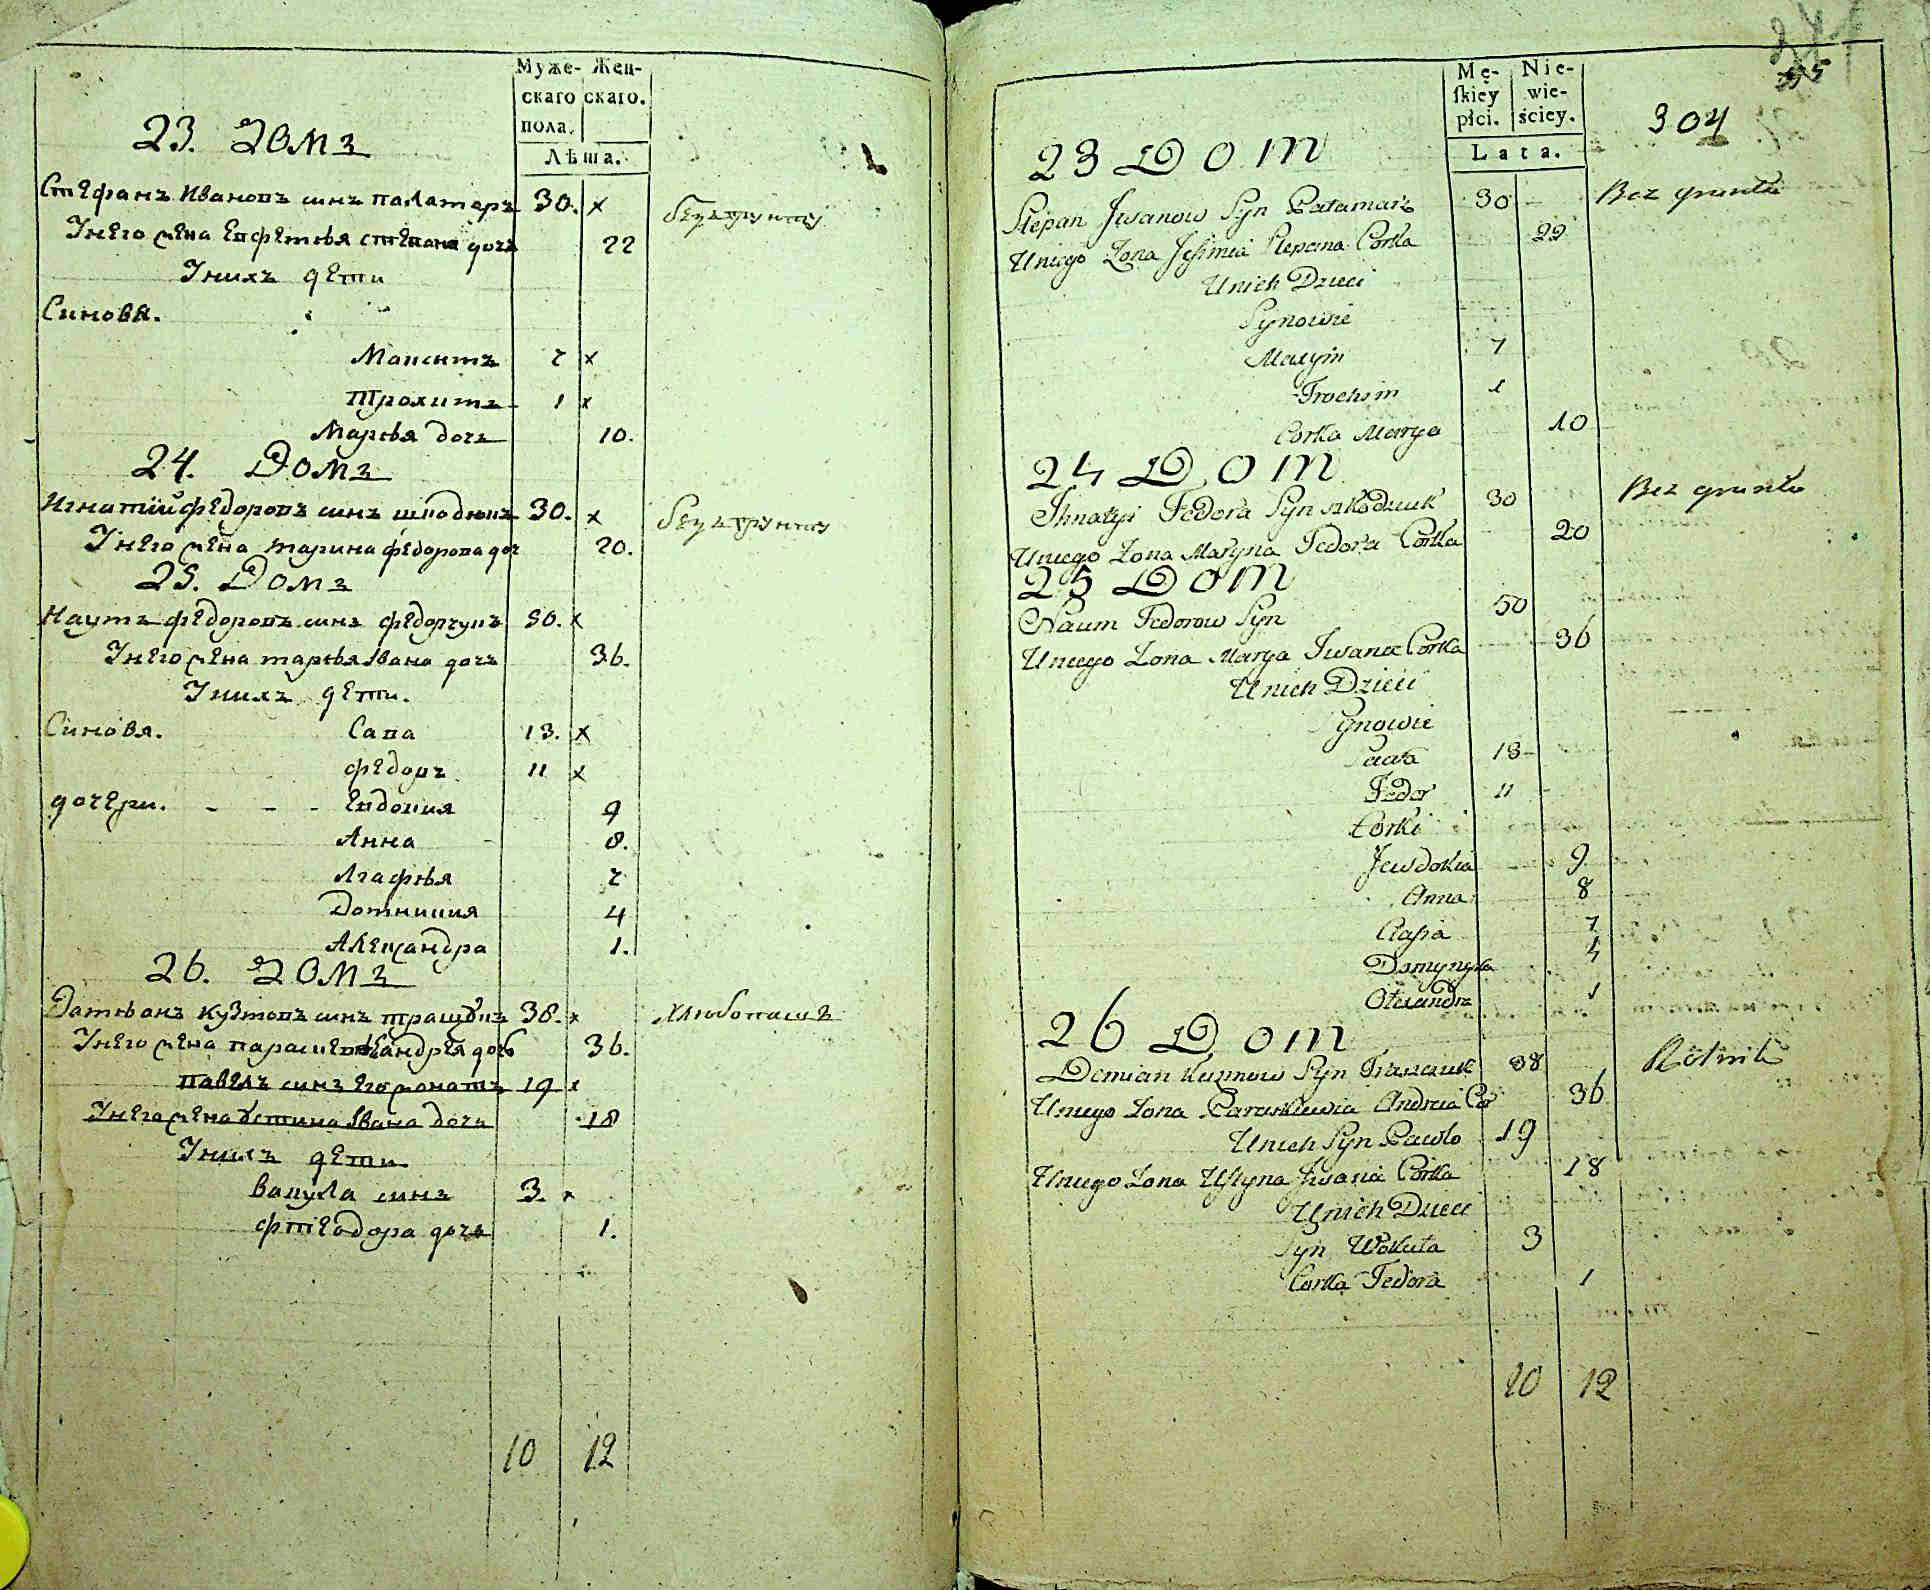 Муже- Жен-
скаго скаго.
пола.
Лѣта.
23. Домъ
Стефанъ Ивановъ синъ паламаръ 30. x безъ грунту
Унего жена Евфемѣя степана дочь 22
Унихъ дети
Синовя.
Максимъ 7 x
Трохимъ 1 x
Маръя дочь 10.
24. Домъ
Игнатій федоровъ синъ шкодюкъ 30. x безъ грунту
Унего жена марина федорова доч 20.
25. Домъ
Наумъ федоровъ синъ федорчукъ 50. x
Унего жена маръя Ивана дочь 36.
Унихъ дети.
Синовя. Сава 13. x
федоръ 11 x
дочери. - - - Евдокия 9
Анна 8.
Агафъя 7
Домникия 4
Александра 1.
26. Домъ
Дамъянъ кузмовъ синъ 38. x хлебопашъ
Унего жена андрея дочь 36.
павелъ синъ его 19 x
Унего жена устина Ивана дочь 18
Унихъ дети
вакула синъ 3. x
фтеодора дочь 1.
10 12
Mę- Nie-
skiey wie-
płci. ściey.
Lata.
55
304
23 Dom
Stepan Jwanow Syn Pałamarz 30 Bez gruntu
Uniego Żona Jefimia Stepana Corka 22
Unich Dzieci
Synowie
Maxym 7
Trochim 1
Corka Marya 10
24 Dom
Jhnatyi Fedora Syn szkodziuk 30 Bez gruntu
Uniego Żona Maryna Fedora Corka 20
25 Dom
Naum Fedorow Syn 50
Uniego Żona Marya Jwana Corka 36
Unich Dzieci
Synowie
Sawa 13
Fedor 11
Corki
Jewdokia 9
Anna 8
Agafia 7
Domynyka 4
Olexandra 1
26 Dom
Demian Kuzmow Syn 38 Rolnik
Uniego Żona Paraskiewia Andreia Cor 36
Unich Syn Pawlo 19
Uniego Żona Ustyna Jwana Corka 18
Unich Dzieci
Syn Wakuła 3
Corka Fedora 1
10 12